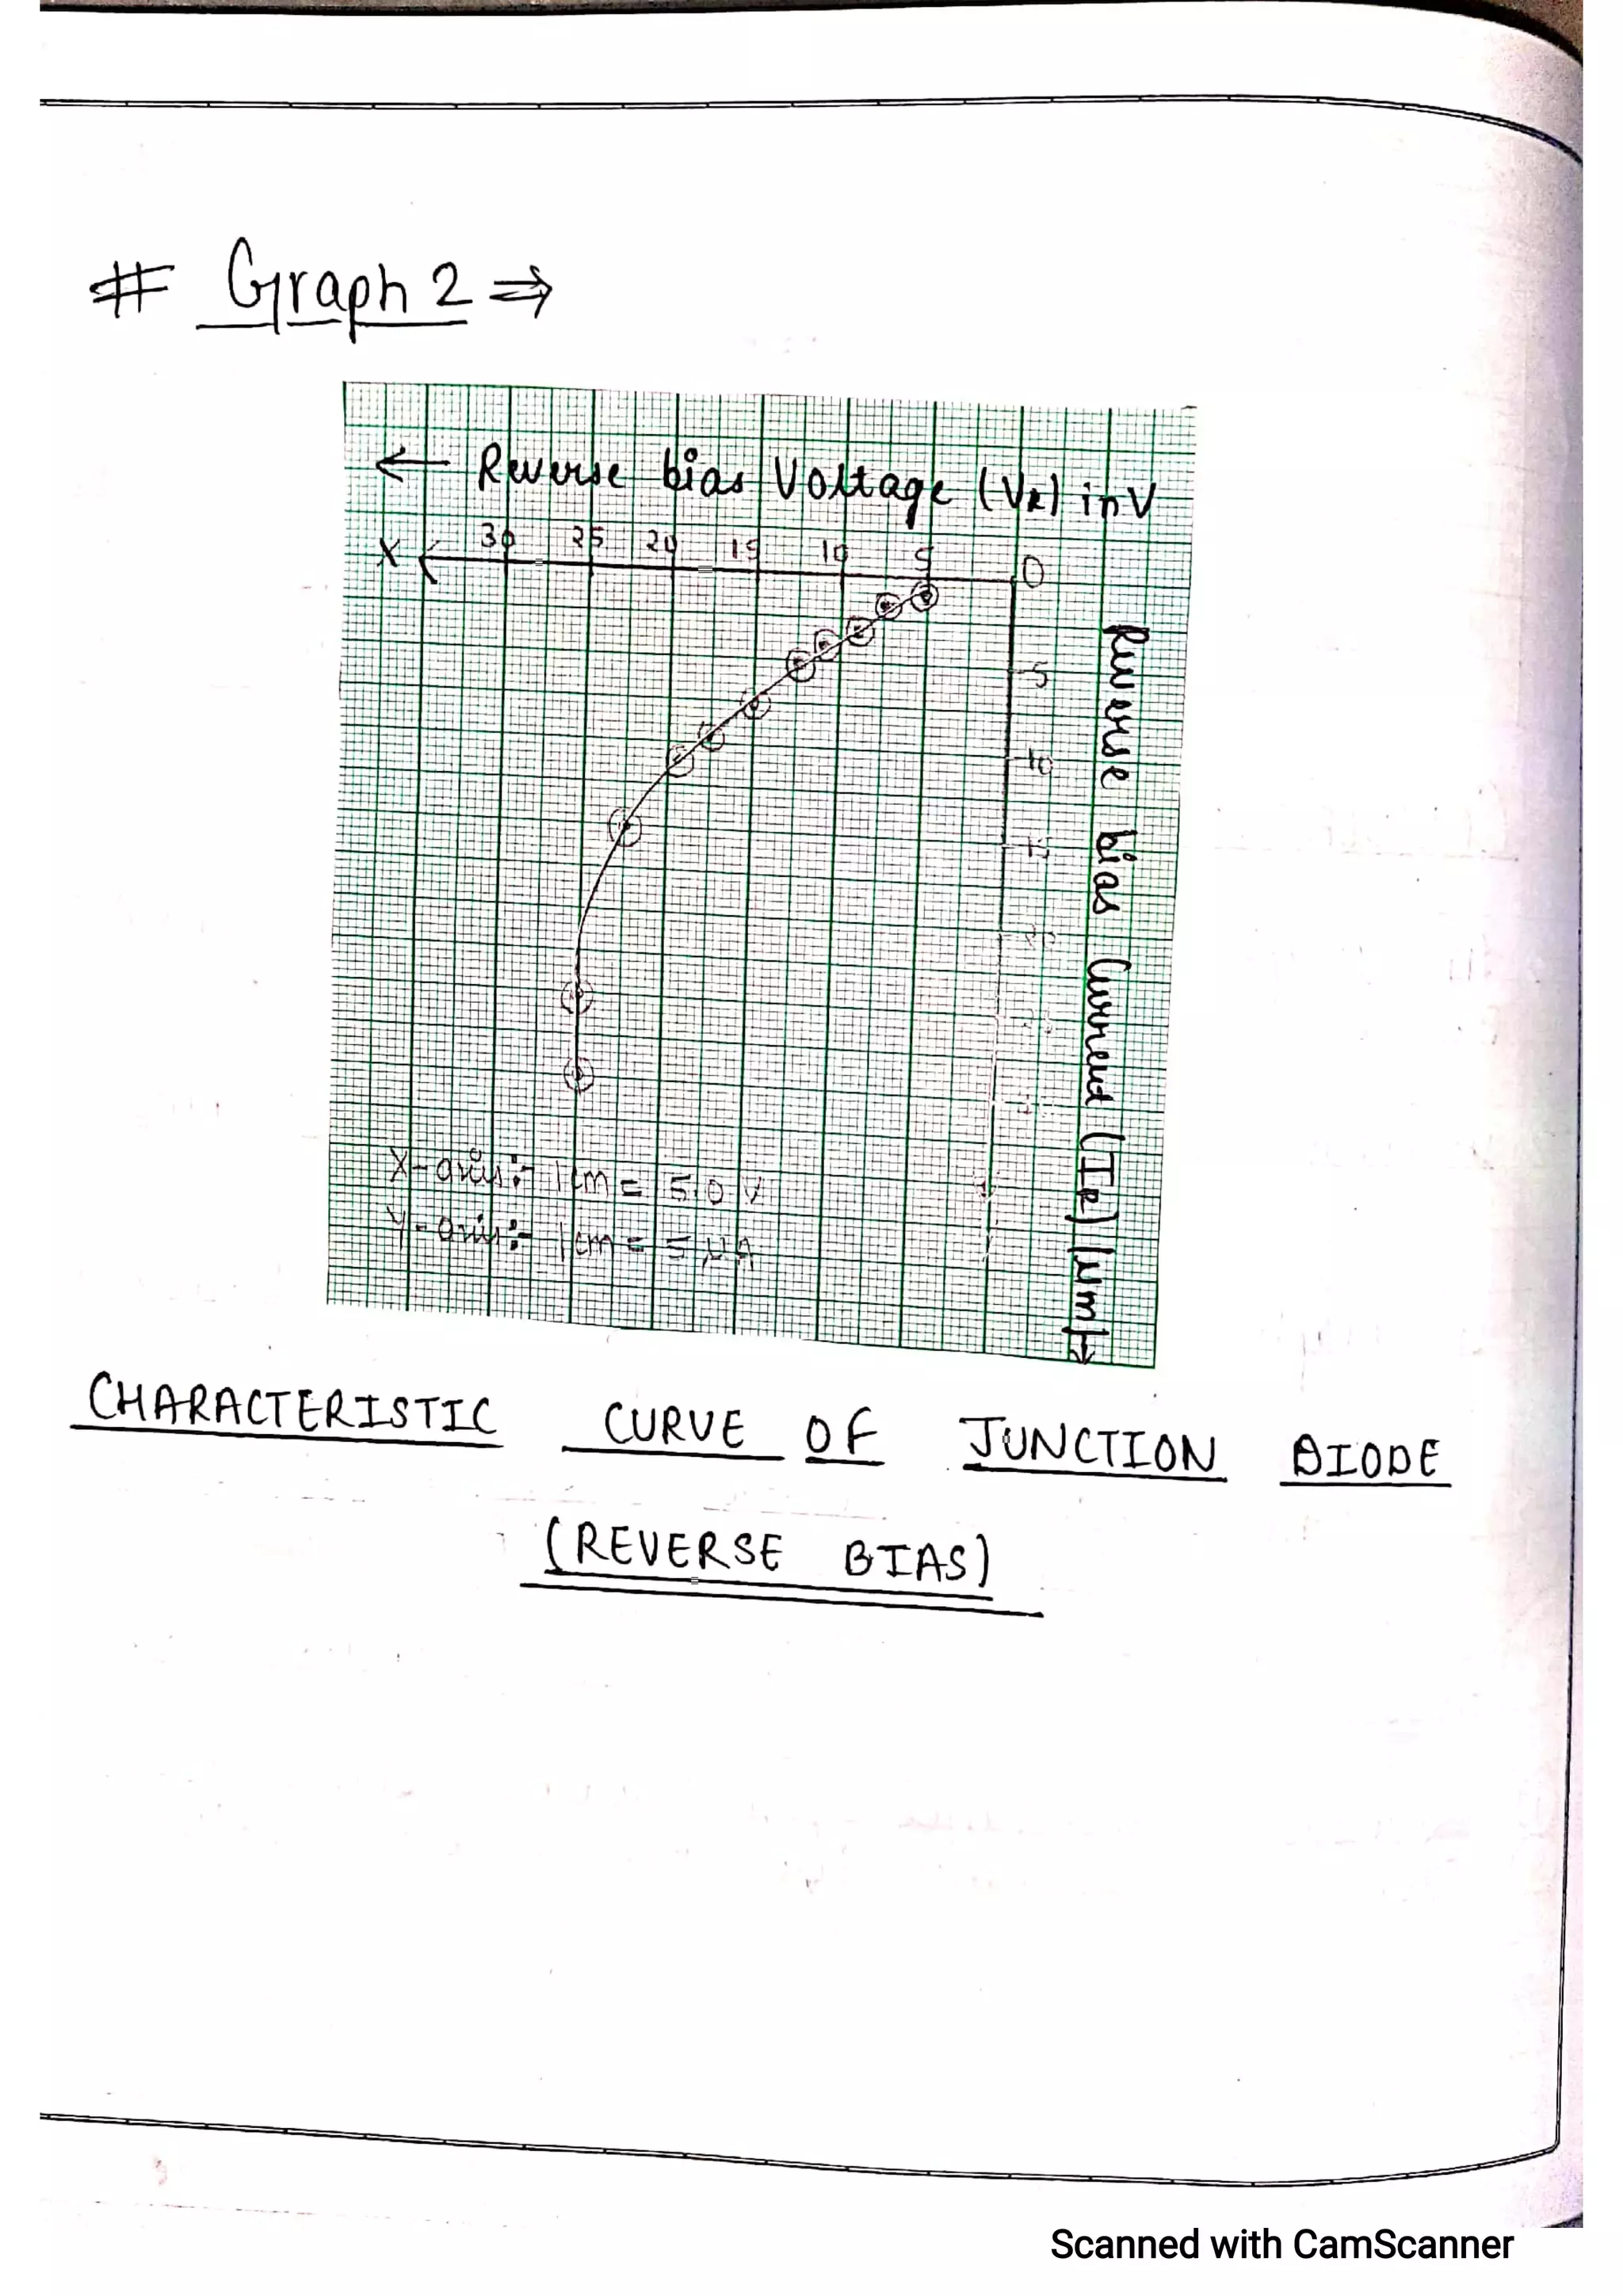 # Graph 2 ⇒
← Reverse bias Voltage (VR) in V
X 30 25 20 15 10 5 0
5
10
15
20
Reverse bias Current (IR) (μm) →
X-axis:- 1cm = 5.0 V
Y-axis:- 1cm = 5 μA
CHARACTERISTIC CURVE OF JUNCTION DIODE
(REVERSE BIAS)
Scanned with CamScanner